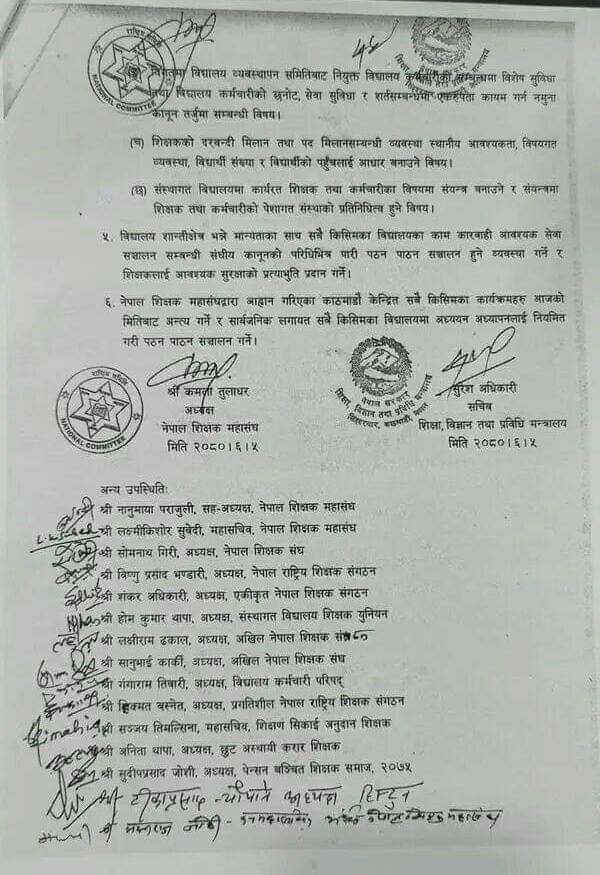 विगतमा विद्यालय व्यवस्थापन समितिबाट नियुक्त विद्यालय कर्मचारीको सम्बन्धमा विशेष सुविधा
तथा विद्यालय कर्मचारीको छनोट, सेवा सुविधा र शर्तसम्बन्धमा एकरुपता कायम गर्न नमुना
कानून तर्जुमा सम्बन्धी विषय।
(च) शिक्षकको दरबन्दी मिलान तथा पद मिलानसम्बन्धी व्यवस्था स्थानीय आवश्यकता, विषयगत
व्यवस्था, विद्यार्थी संख्या र विद्यार्थीको पहुँचलाई आधार बनाउने विषय।
(छ) संस्थागत विद्यालयमा कार्यरत शिक्षक तथा कर्मचारीका विषयमा संयन्त्र बनाउने र संयन्त्रमा
शिक्षक तथा कर्मचारीको पेशागत संस्थाको प्रतिनिधित्व हुने विषय।
५. विद्यालय शान्तीक्षेत्र भन्ने मान्यताका साथ सबै किसिमका विद्यालयका काम कारवाही आवश्यक सेवा
सञ्चालन सम्बन्धी संघीय कानूनको परिधिभित्र पारी पठन पाठन सञ्चालन हुने व्यवस्था गर्ने र
शिक्षकलाई आवश्यक सुरक्षाको प्रत्याभूति प्रदान गर्ने।
६. नेपाल शिक्षक महासंघद्वारा आह्वान गरिएका काठमाडौं केन्द्रित सबै किसिमका कार्यक्रमहरु आजको
मितिबाट अन्त्य गर्ने र सार्बजनिक लगायत सबै किसिमका विद्यालयमा अध्ययन अध्यापनलाई नियमित
गरी पठन पाठन सञ्चालन गर्ने।
राष्ट्रिय समिति
NATIONAL COMMITTEE
श्री कमला तुलाधर
अध्यक्ष
नेपाल शिक्षक महासंघ
मिति २०८०।६।५
नेपाल सरकार
शिक्षा, विज्ञान तथा प्रविधि मन्त्रालय
सिंहदरबार, काठमाडौं, नेपाल
सुरेश अधिकारी
सचिव
शिक्षा, विज्ञान तथा प्रविधि मन्त्रालय
मिति २०८०।६।५
अन्य उपस्थितिः
श्री नानुमाया पराजुली, सह-अध्यक्ष, नेपाल शिक्षक महासंघ
श्री लक्ष्मीकिशोर सुवेदी, महासचिव, नेपाल शिक्षक महासंघ
श्री सोमनाथ गिरी, अध्यक्ष, नेपाल शिक्षक संघ
श्री विष्णु प्रसाद भण्डारी, अध्यक्ष, नेपाल राष्ट्रिय शिक्षक संगठन
श्री शंकर अधिकारी, अध्यक्ष, एकीकृत नेपाल शिक्षक संगठन
श्री होम कुमार थापा, अध्यक्ष, संस्थागत विद्यालय शिक्षक युनियन
श्री लक्षीराम ढकाल, अध्यक्ष, अखिल नेपाल शिक्षक संगठन
श्री सानुभाई कार्की, अध्यक्ष, अखिल नेपाल शिक्षक संघ
श्री गंगाराम तिवारी, अध्यक्ष, विद्यालय कर्मचारी परिषद्
श्री हिक्मत बस्नेत, अध्यक्ष, प्रगतिशील नेपाल राष्ट्रिय शिक्षक संगठन
श्री सञ्जय तिमल्सिना, महासचिव, शिक्षण सिकाई अनुदान शिक्षक
श्री अनिता थापा, अध्यक्ष, छुट अस्थायी करार शिक्षक
श्री सुदीपप्रसाद जोशी, अध्यक्ष, पेन्सन बञ्चित शिक्षक समाज, २०७५
श्री टीकाप्रसाद
श्री